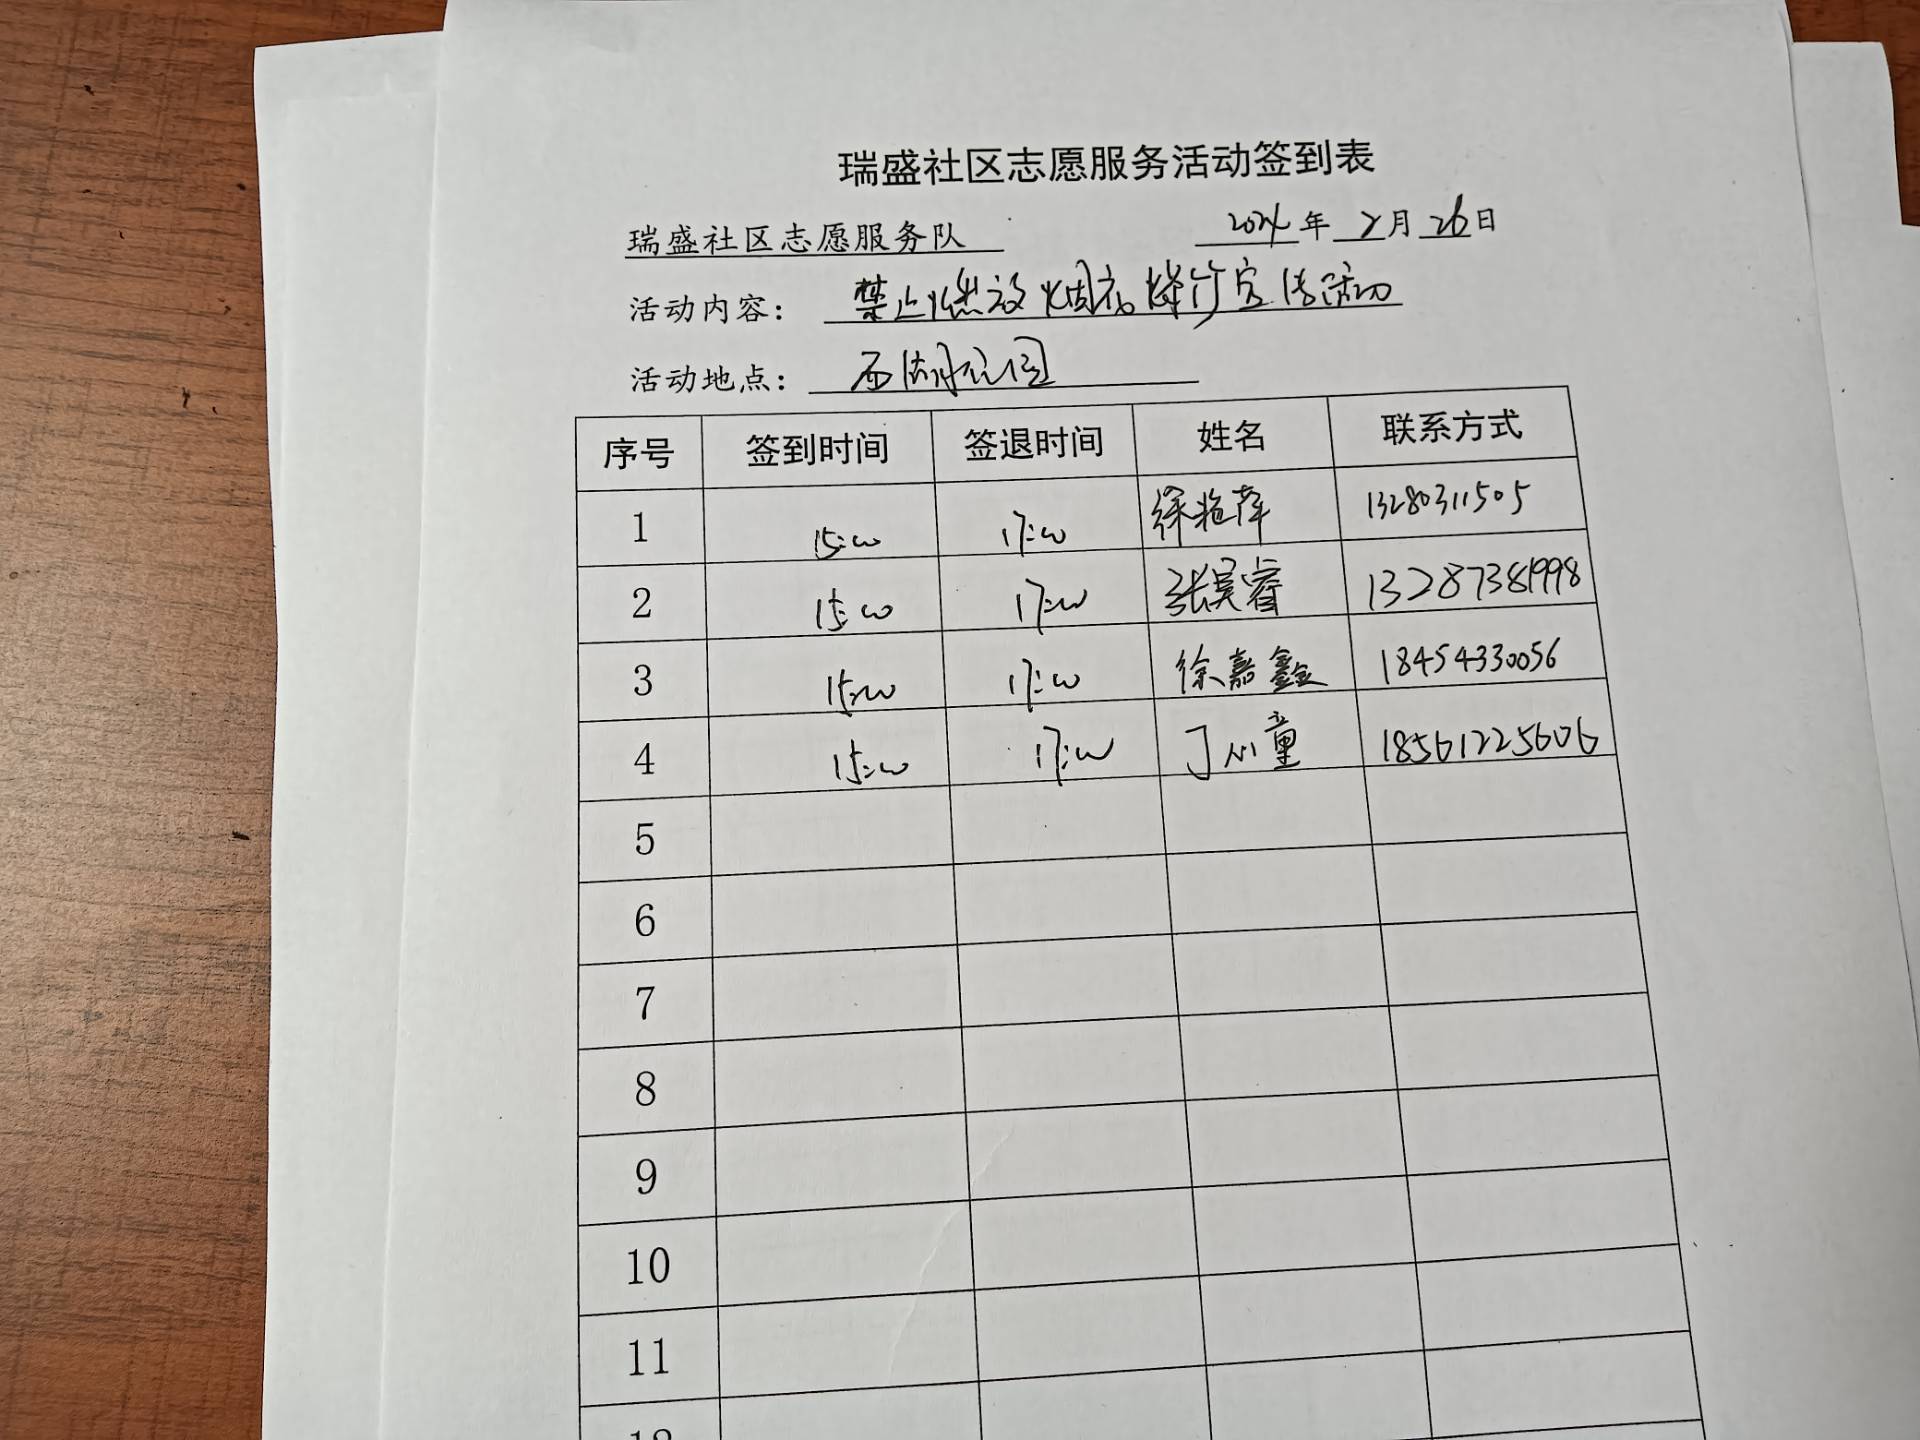 瑞盛社区志愿服务活动签到表
瑞盛社区志愿服务队 2024年2月26日
活动内容: 禁止燃放烟花爆竹宣传活动
活动地点: 西湖公园
序号 签到时间 签退时间 姓名 联系方式
1 15:00 17:00 徐艳萍 13280311505
2 15:00 17:00 张昊睿 13287381998
3 15:00 17:00 徐嘉鑫 18454330056
4 15:00 17:00 丁心童 18561225606
5
6
7
8
9
10
11
12